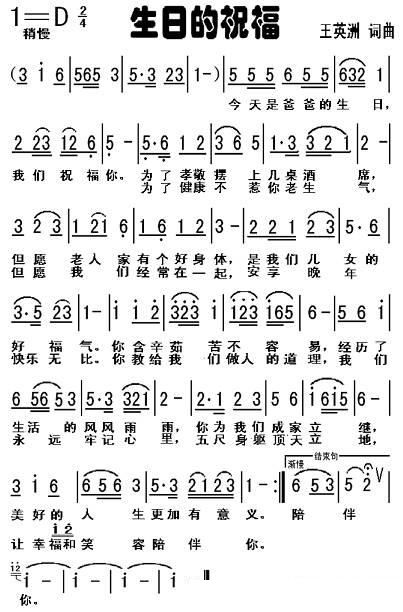 1=D 2/4 生日的祝福 王英洲 词曲
稍慢
(3 i 6 | 565 3 | 5·3 23 | 1-) | 5 5 5 | 6 5 5 | 632 1 |
今天是爸爸的生 日，
2 23 | 12 6 | 5 - | 5·6 1 2 | 3 6 5 | 1·3 3 2 1 | 5 - |
我们祝福你。为了孝敬摆 上几桌酒 席，
为了健康不 惹你老生 气，
3 2 3 | 1 2 1 | 6 1 2 | 1 6 1 2 | 3 - | 2 2 1 2 | 2 3 | 5·6 |
但愿 老人 家有个好身体，是我们儿 女的
但愿 我们经常在一起，安享 晚 年
1·3 23 | 1- | i i 2 | 323 i 3 | 123 165 | i- | 5 6 i |
好 福 气。你含辛茹 苦不 容 易，经历了
快乐 无比。你教给我 们做人的道理，我们
6 56 53 | 5·3 321 | 2 - | 2·1 2 3 | 5 6 5 | i 6i5 | 6- |
生活 的风风雨 雨，你为我们成家立 继，
永 远牢记心 里，五尺身躯顶天立 地，
渐慢 结束句
3 i 6 | 56 5 3 | 5·2 2123 | 1- :| 6 5 3 | 5 2 |
美好的人 生更加有意义。陪伴
i 2
让幸福和笑 容陪伴 你。
i2
i - | i - | i - | i - ‖
你。